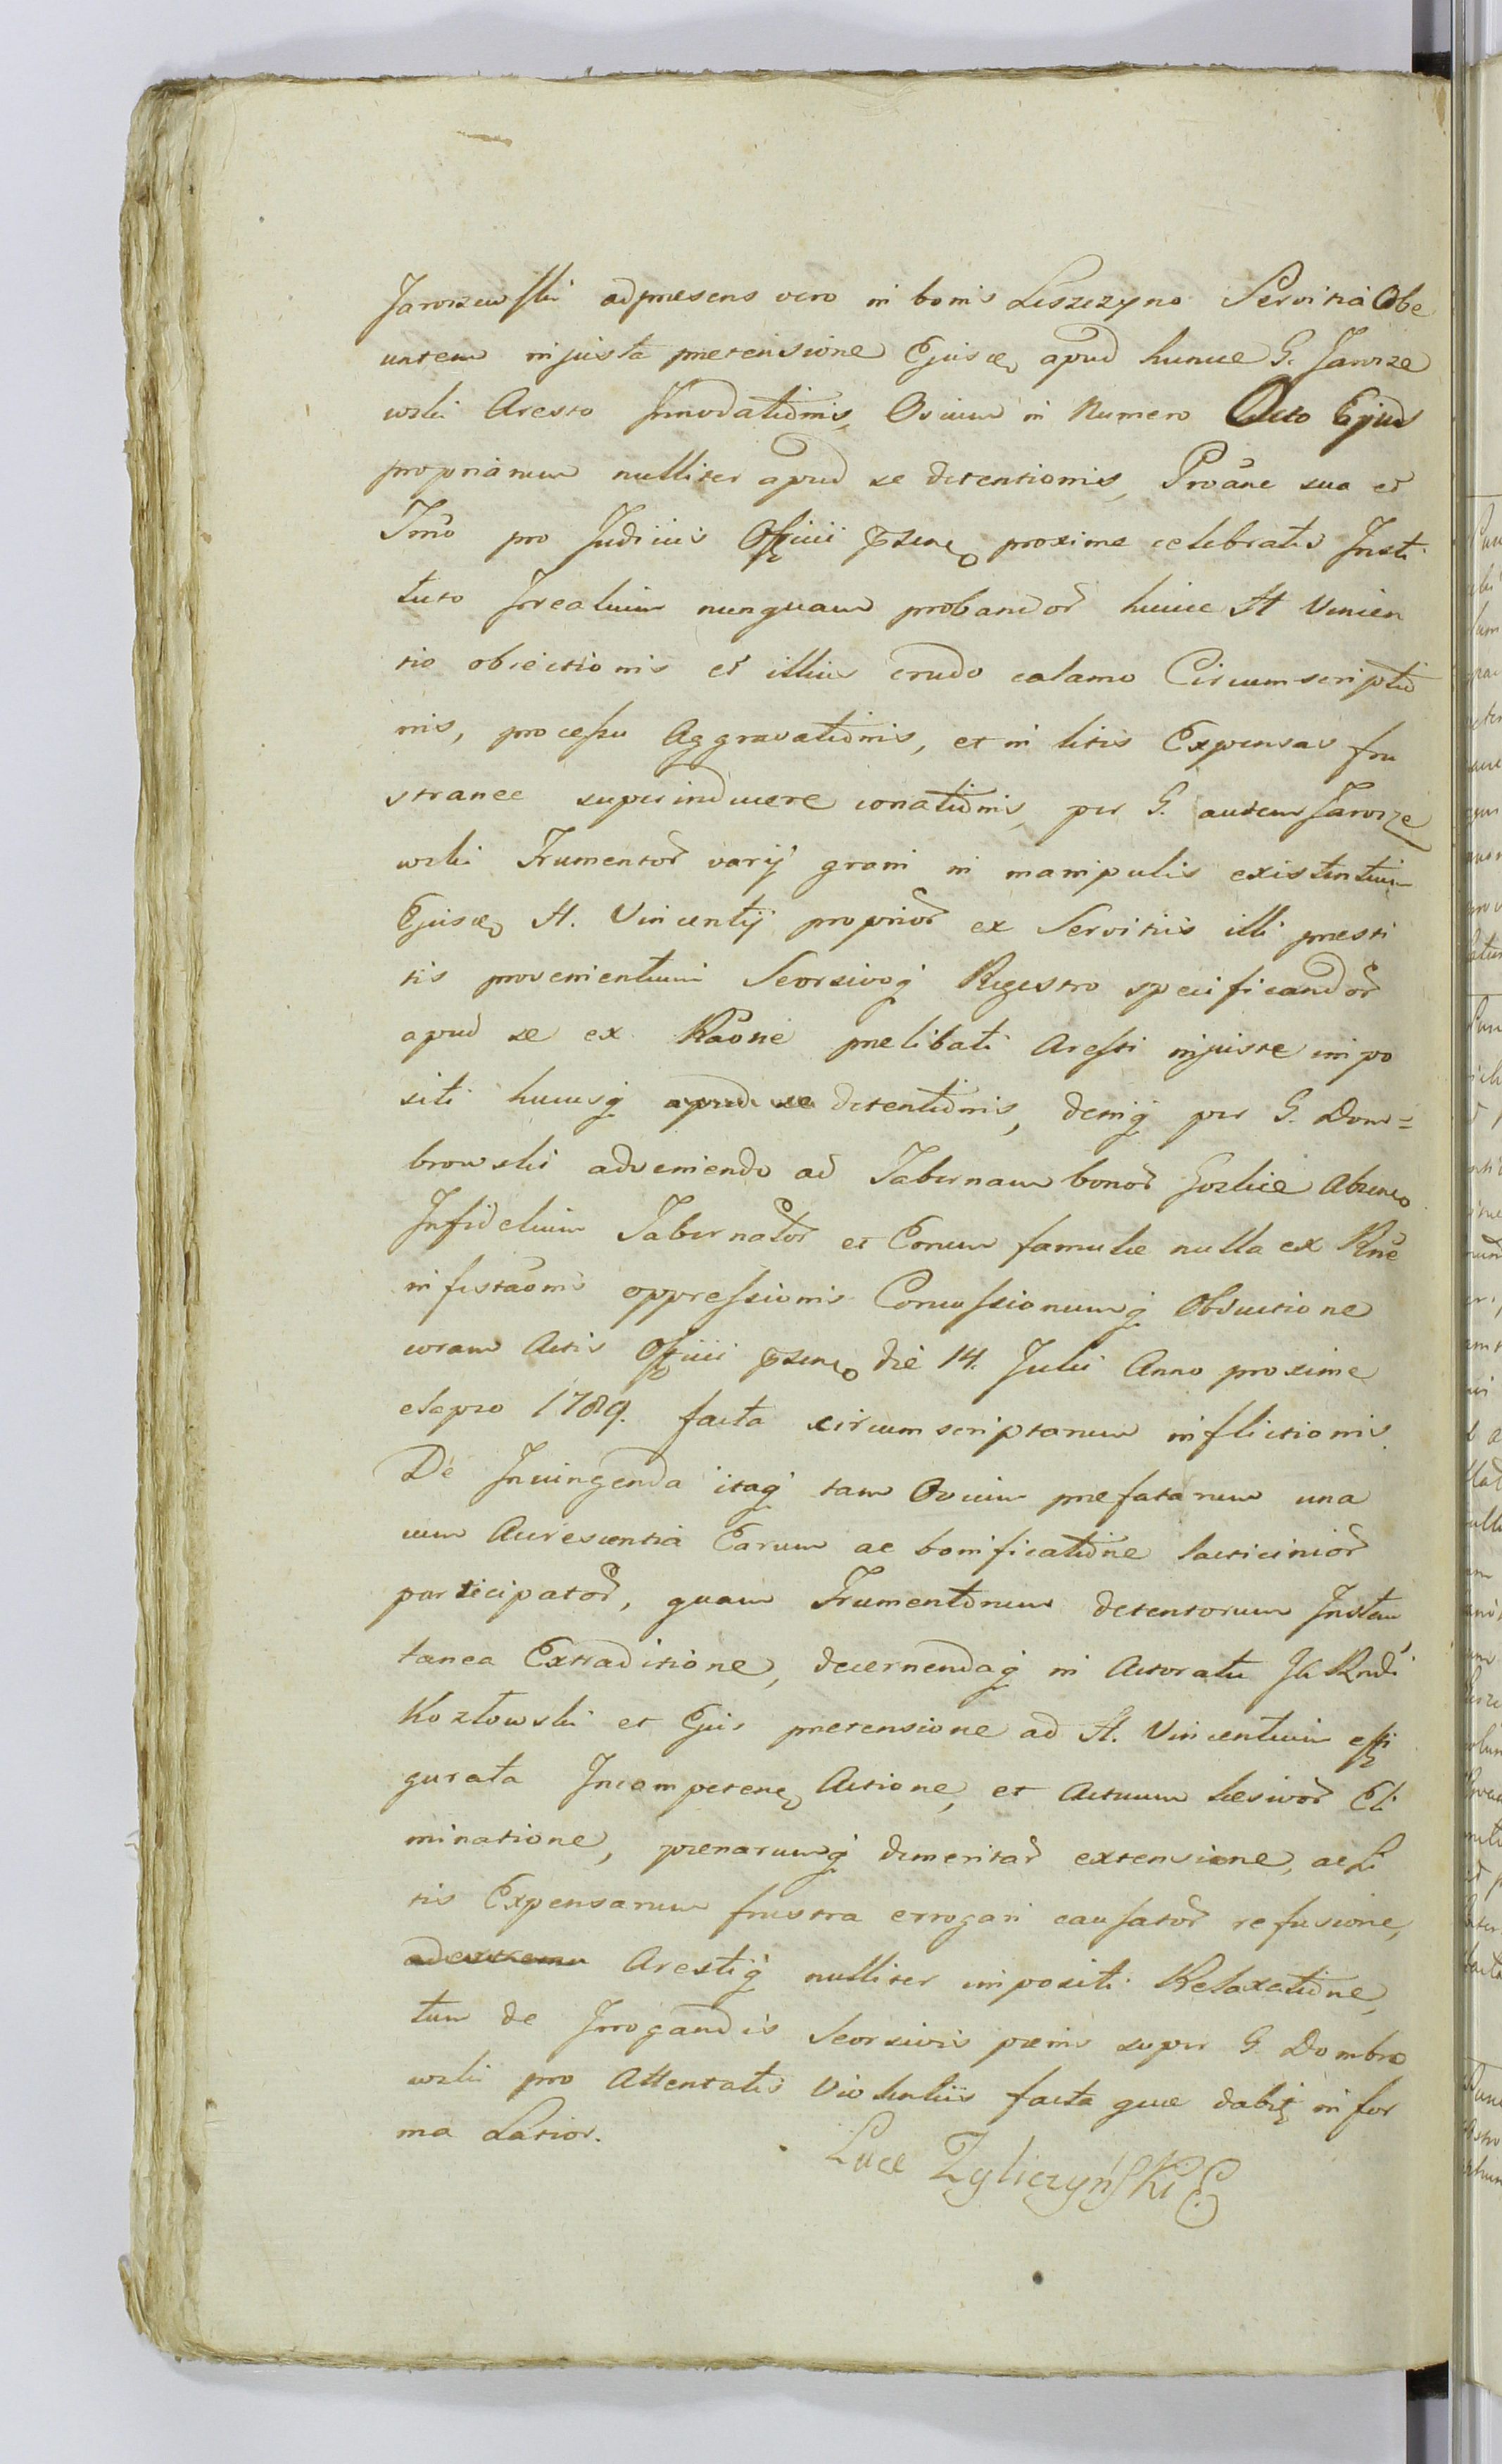 Jaworzewski adpraesens vero in bonis Leszczyno Servitia Obe
untem injusta praetensione Ejusdem apud hunce G. Jaworze
wski Aresto Innodationis, Ovium in Numero Octo Ejus
propriarum nulliter apud se detentionis, Proane sua et
Imo pro Judiciis Officii praesentis proxime celebratis Insti
tuto Irealium nunquam probandor huice H Vincen
tio objectionis et illius crudo calamo Circumscriptio
nis, processu Aggravationis, et in litis Expensas fru
stranee superinducere conationis, per G. autem Jaworze
wski Frumentor varij grani in manipulis existentium
Ejusdem H. Vincentij proprior ex Servitiis illi praesti
tis provenientium Seorsivoq Regestro specificandor
apud se ex Raone praelibati Aresti injuste impo
siti hucusq apud se detentionis, deniq per G. Dom=
browski adveniendo ad Tabernam bonor Gozlice
Infidelium Tabernator et Eorum famulae nulla ex Rne
infestaonis oppressionis Concussionumq Obductione
coram Actis Officii praesentis die 14. Julii Anno proxime
elapso 1789. facta circumscriptarum inflictionis
De Injungenda itaq tam Ovium praefatarum una
cum Accrescentia Earum ac bonificatione lacticinior
participator, quam Frumentorum detentorum Instan
tanea Extraditione, decernendaq in Actoratu Rndi
Kozłowski et Ejus praetensione ad H. Vincentium effi
gurata Incompetens Actione, et Actuum laesivor Eli
minatione, paenarumq demeritar extensione, ac Li
tis Expensarum frustra errogari causator refusione,
Arestiq nulliter impositi Relaxatione,
tum de Irrogandis Seorsivis paenis super G Dombro
wski pro Attentatis Violentiis facta quae dabit in for
ma Latior.
Luce ZgliczyńsKi